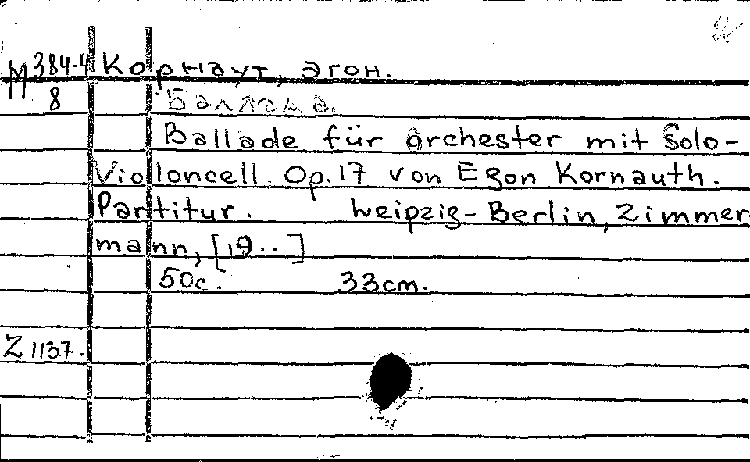 M 384-4 Корнаут, Эгон.
8 Баллада.
Ballade für Orchester mit Solo-
Violoncell. Op. 17 von Egon Kornauth.
Partitur. Leipzig-Berlin, Zimmer
mann, [19..]
50c. 33cm.
Z 1137.